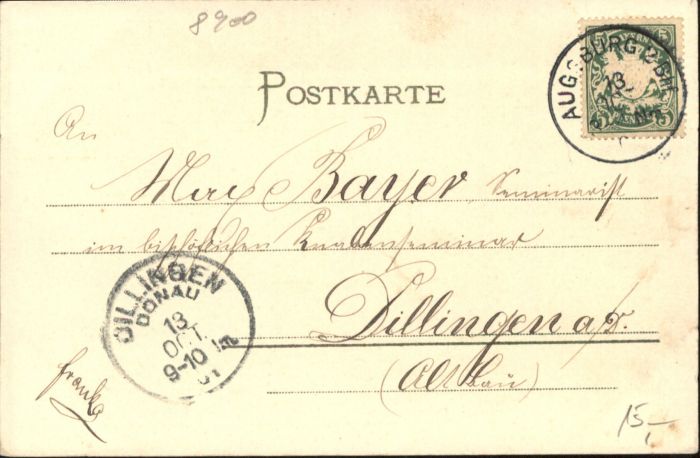 8900
POSTKARTE
AUGSBURG 2 BHF.
13
5
An
Max Bayer, Seminarist
im bischöflichen Knabenseminar
Dillingen a/D.
(Altbau)
DILLINGEN
DONAU
13
OCT.
9-10
01
franko
15,-